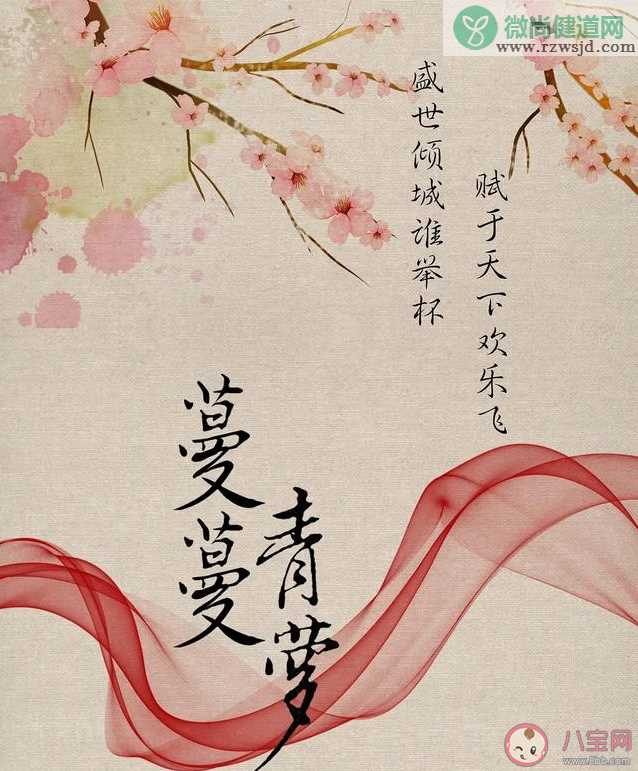 微尚健道网
www.rzwsjd.com
盛世倾城谁举杯
赋于天下欢乐飞
蔓蔓
青萝
八宝网
www.8bb.com